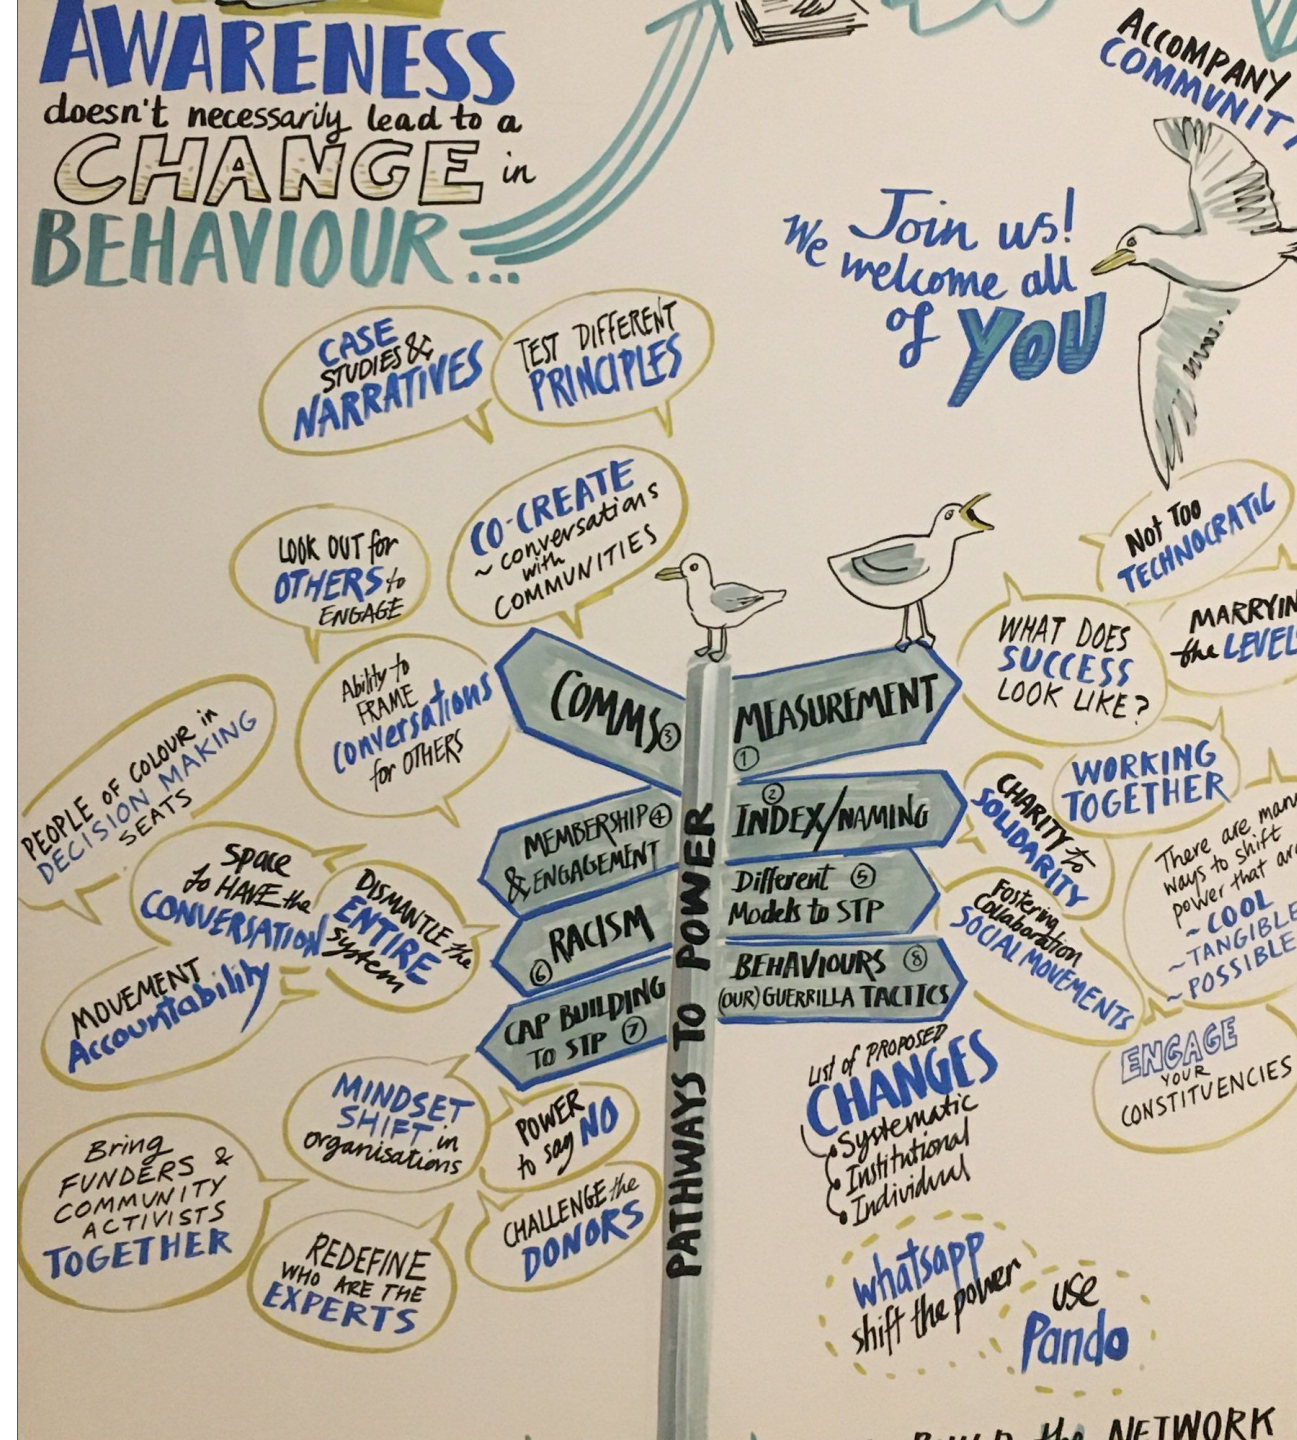 AWARENESS
doesn't necessarily lead to a
CHANGE in
BEHAVIOUR...
ACCOMPANY
COMMUNITY
Join us!
We welcome all
of YOU
CASE
STUDIES &
NARRATIVES
TEST DIFFERENT
PRINCIPLES
LOOK OUT for
OTHERS to
ENGAGE
CO-CREATE
~ conversations
with
COMMUNITIES
Ability to
FRAME
Conversations
for OTHERS
PEOPLE OF COLOUR in
DECISION MAKING
SEATS
Space
to HAVE the
CONVERSATION
DISMANTLE the
ENTIRE
system
MOVEMENT
Accountability
MINDSET
SHIFT in
organisations
Bring
FUNDERS &
COMMUNITY
ACTIVISTS
TOGETHER
REDEFINE
WHO ARE THE
EXPERTS
POWER
to say NO
CHALLENGE the
DONORS
COMMS ③
MEMBERSHIP ④
& ENGAGEMENT
RACISM
⑥
CAP BUILDING
TO STP ⑦
PATHWAYS TO POWER
MEASUREMENT
①
②
INDEX/NAMING
Different ⑤
Models to STP
BEHAVIOURS ⑧
(OUR) GUERRILLA TACTICS
NOT TOO
TECHNOCRATIC
WHAT DOES
SUCCESS
LOOK LIKE?
MARRYIN
the LEVEL
WORKING
TOGETHER
CHARITY to
SOLIDARITY
Fostering
Collaboration
SOCIAL MOVEMENTS
There are man
ways to shift
power that ar
~ COOL
~ TANGIBLE
~ POSSIBLE
ENGAGE
YOUR
CONSTITUENCIES
LIST of PROPOSED
CHANGES
Systematic
Institutional
Individual
whatsapp
shift the power
use
Pando
the NETWORK